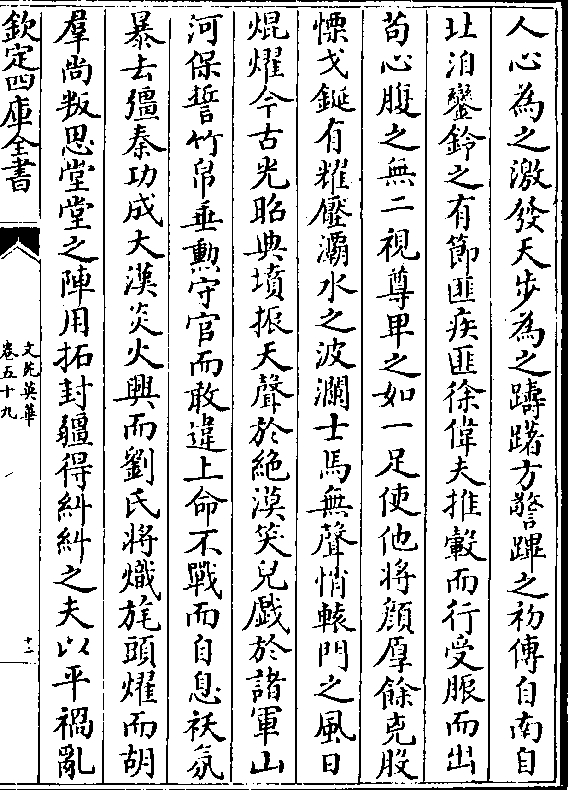 人心為之激發天步為之躊躇方警蹕之初傳自南自
北洎鑾鈴之有節匪疾匪徐偉夫推轂而行受脤而出
苟心腹之無二視尊卑之如一足使他將顔厚餘克股
慄戈鋋有耀壓灞水之波瀾士馬無聲悄轅門之風日
焜燿今古光昭典墳振天聲於絶漠笑兒戲於諸軍山
河保誓竹帛垂勲守官而敢違上命不戰而自息祅氛
暴去彊秦功成大漢炎火興而劉氏將熾旄頭燿而胡
羣尚叛思堂堂之陣用拓封疆得糾糾之夫以平禍亂
欽定四庫全書
文苑英華
卷五十九
十二